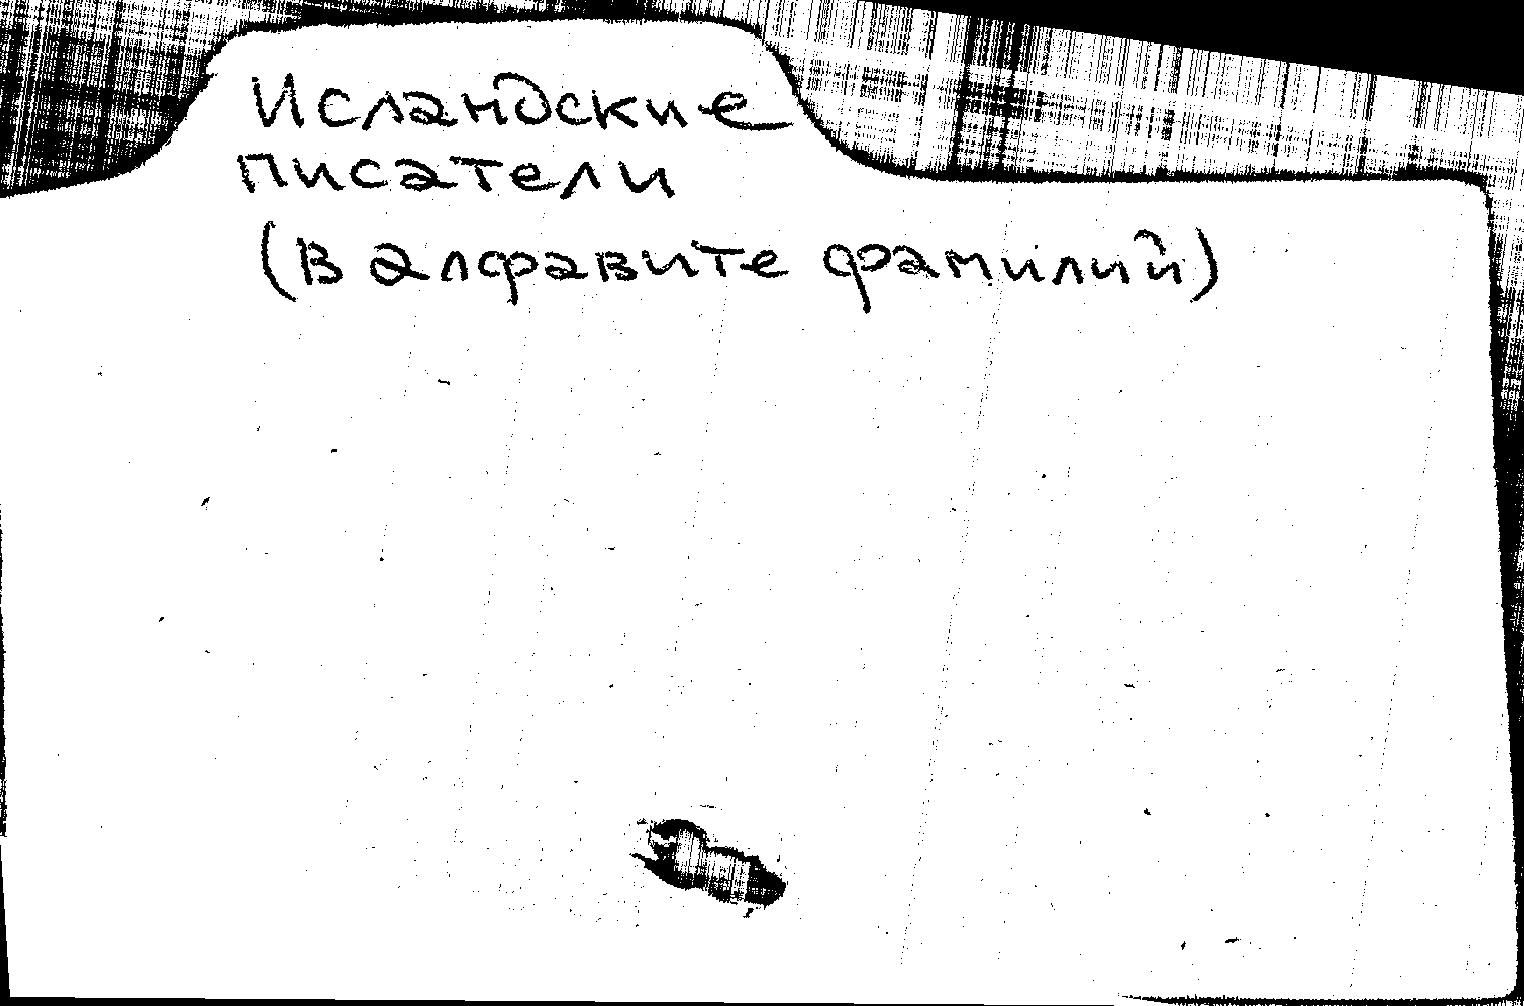 Исландские
писатели
(в алфавите фамилий)